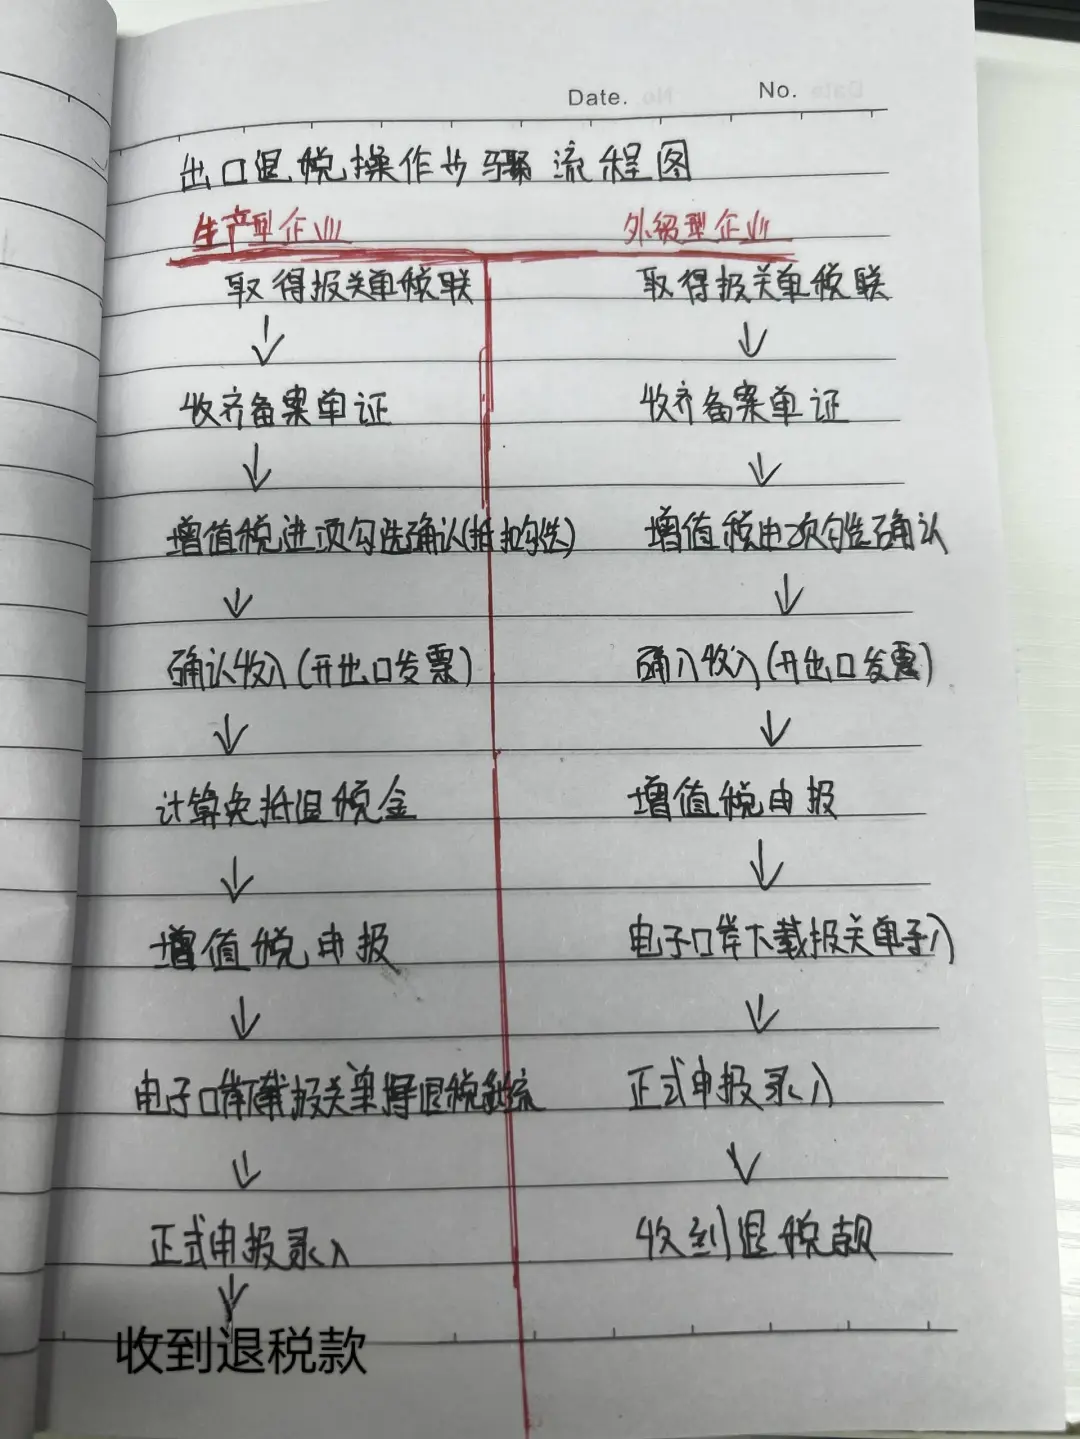 Date.
No.
出口退税操作步骤流程图
生产型企业
取得报关单税联
收齐备案单证
增值税进项勾选确认(抵扣勾选)
确认收入(开出口发票)
计算免抵退税金
增值税申报
电子口岸下载报关单 退税系统
正式申报录入
收到退税款
外贸型企业
取得报关单税联
收齐备案单证
增值税 项勾选确认
确入收入(开出口发票)
增值税申报
电子口岸下载报关单
正式申报录入
收到退税款